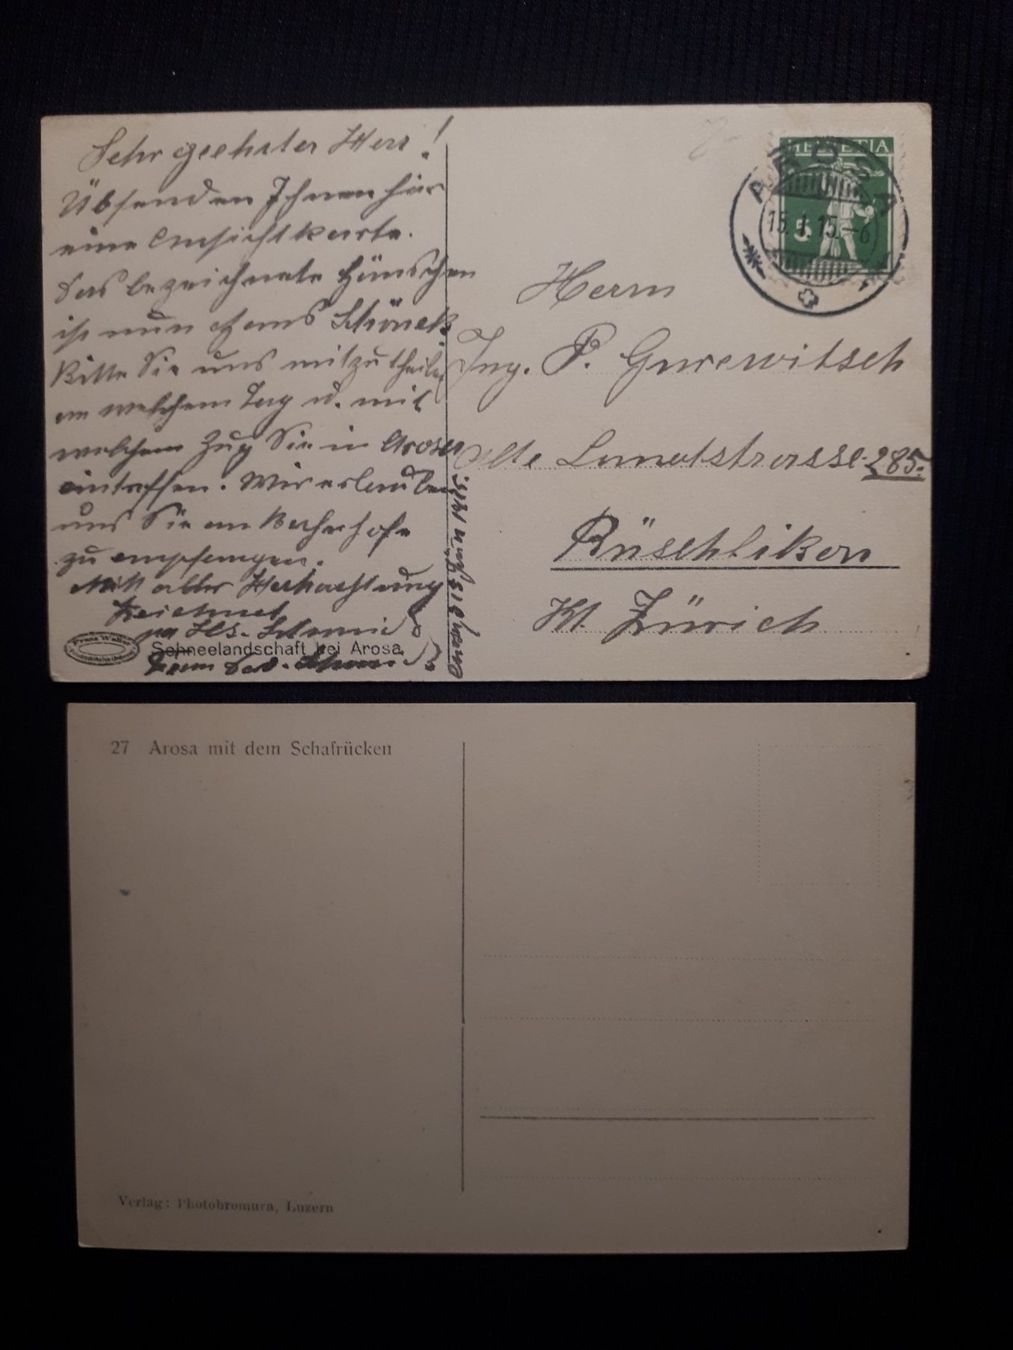 Sehr geehrter Herr!
Übsenden Ihnen hier
eine Ansichtkarte.
Das bezeichnete Häuschen
ist nun ehems Schöneck.
Bitte Sie uns mitzutheilen
an welchem Tag u. mit
welchem Zug Sie in Arosa
eintreffen. Wir erlauben
uns Sie am Bahnhofe
zu empfangen.
Mit aller Hochachtung
Zeichnet
Schneelandschaft bei Arosa.
HELVETIA
5
AROSA
15. I. 15.-6
Herrn
Ing. P. Gurewitsch
alte Landstrasse 285.
Rüschlikon
Kt. Zürich
27 Arosa mit dem Schafrücken
Verlag: Photobromura, Luzern